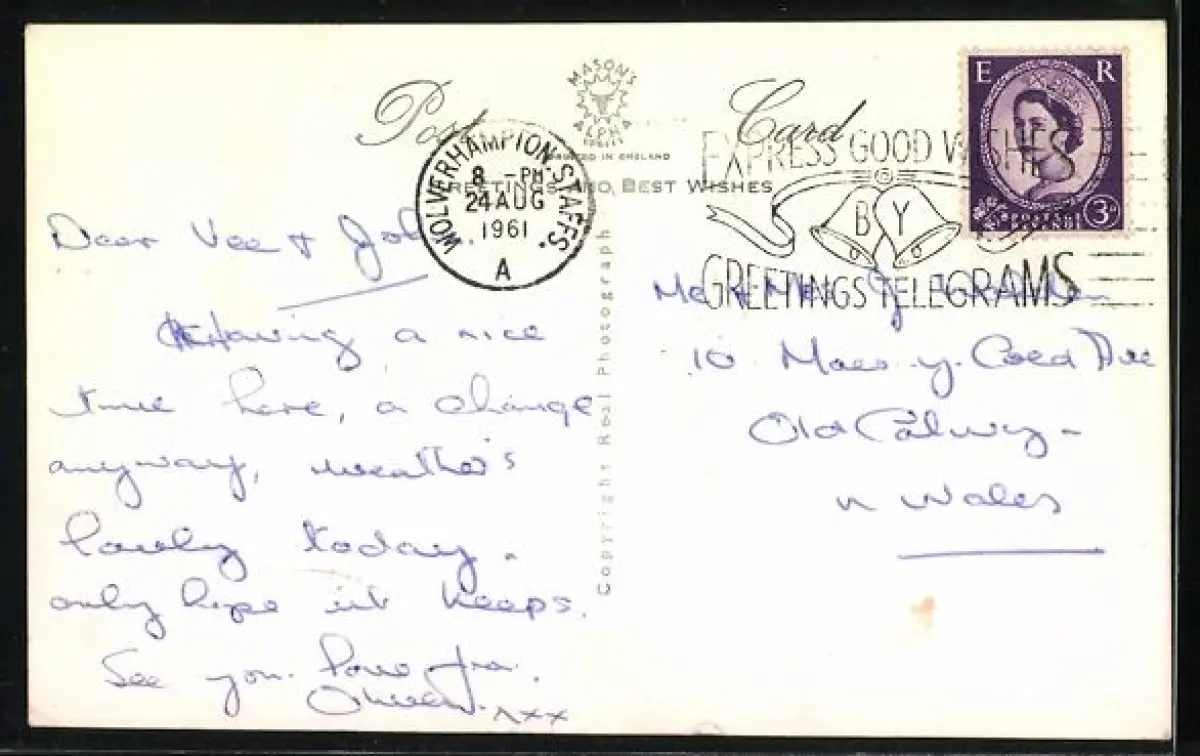 Post Card
MASON'S
ALPHA
SERIES
PRINTED IN ENGLAND
GREETINGS AND BEST WISHES
WOLVERHAMPTON STAFFS.
8 - PM
24 AUG
1961
A
EXPRESS GOOD WISHES
BY
GREETINGS TELEGRAMS
E R
POSTAGE
REVENUE
3D
Dear Vee + John.
Having a nice
time here, a change
anyway, weather's
lovely today.
only hope it keeps.
See you. love from
Olwen. xxx
Copyright Real Photograph
Mr + Mrs J.
10 Maes-y-Coed Ave
Old Colwyn
N Wales